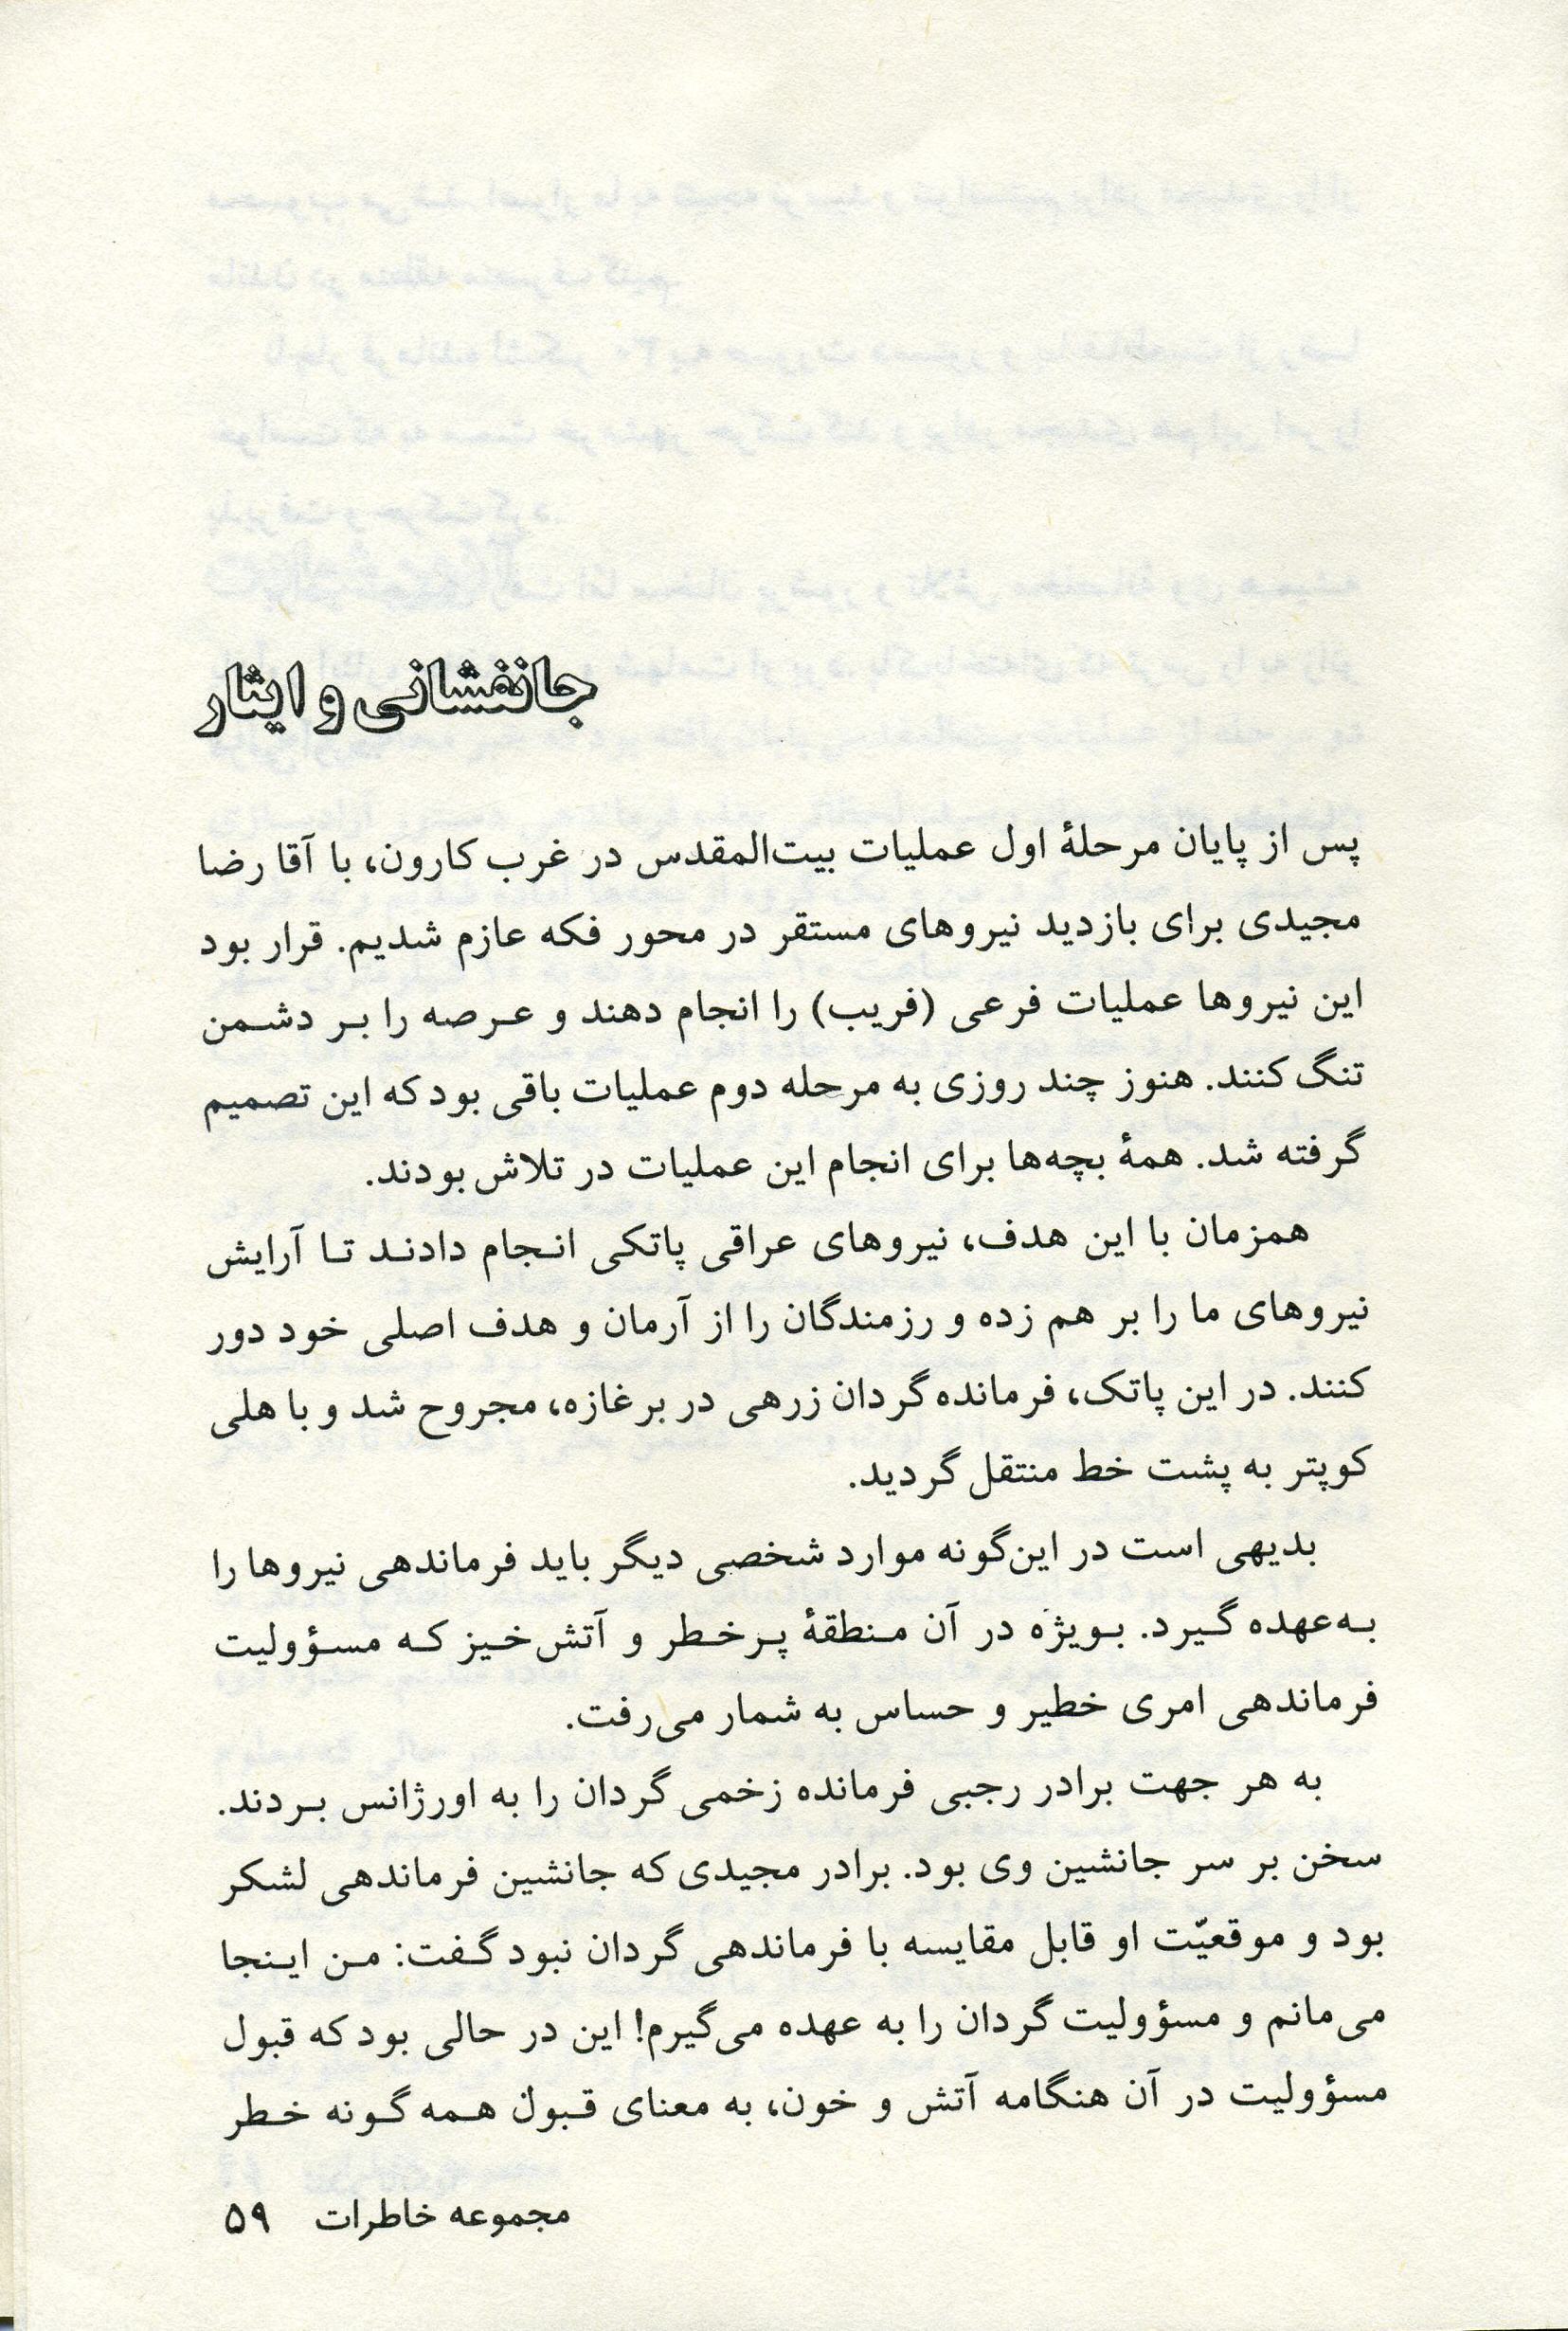 جانفشانی و ایثار
پس از پایان مرحلهٔ اول عملیات بیت‌المقدس در غرب کارون، با آقا رضا
مجیدی برای بازدید نیروهای مستقر در محور فکه عازم شدیم. قرار بود
این نیروها عملیات فرعی (فریب) را انجام دهند و عرصه را بر دشمن
تنگ کنند. هنوز چند روزی به مرحله دوم عملیات باقی بود که این تصمیم
گرفته شد. همهٔ بچه‌ها برای انجام این عملیات در تلاش بودند.
همزمان با این هدف، نیروهای عراقی پاتکی انجام دادند تا آرایش
نیروهای ما را بر هم زده و رزمندگان را از آرمان و هدف اصلی خود دور
کنند. در این پاتک، فرمانده گردان زرهی در برغازه، مجروح شد و با هلی
کوپتر به پشت خط منتقل گردید.
بدیهی است در این‌گونه موارد شخصی دیگر باید فرماندهی نیروها را
به‌عهده گیرد. بویژه در آن منطقهٔ پرخطر و آتش‌خیز که مسؤولیت
فرماندهی امری خطیر و حساس به شمار می‌رفت.
به هر جهت برادر رجبی فرمانده زخمی گردان را به اورژانس بردند.
سخن بر سر جانشین وی بود. برادر مجیدی که جانشین فرماندهی لشکر
بود و موقعیّت او قابل مقایسه با فرماندهی گردان نبود گفت: من اینجا
می‌مانم و مسؤولیت گردان را به عهده می‌گیرم! این در حالی بود که قبول
مسؤولیت در آن هنگامه آتش و خون، به معنای قبول همه گونه خطر
مجموعه خاطرات ۵۹